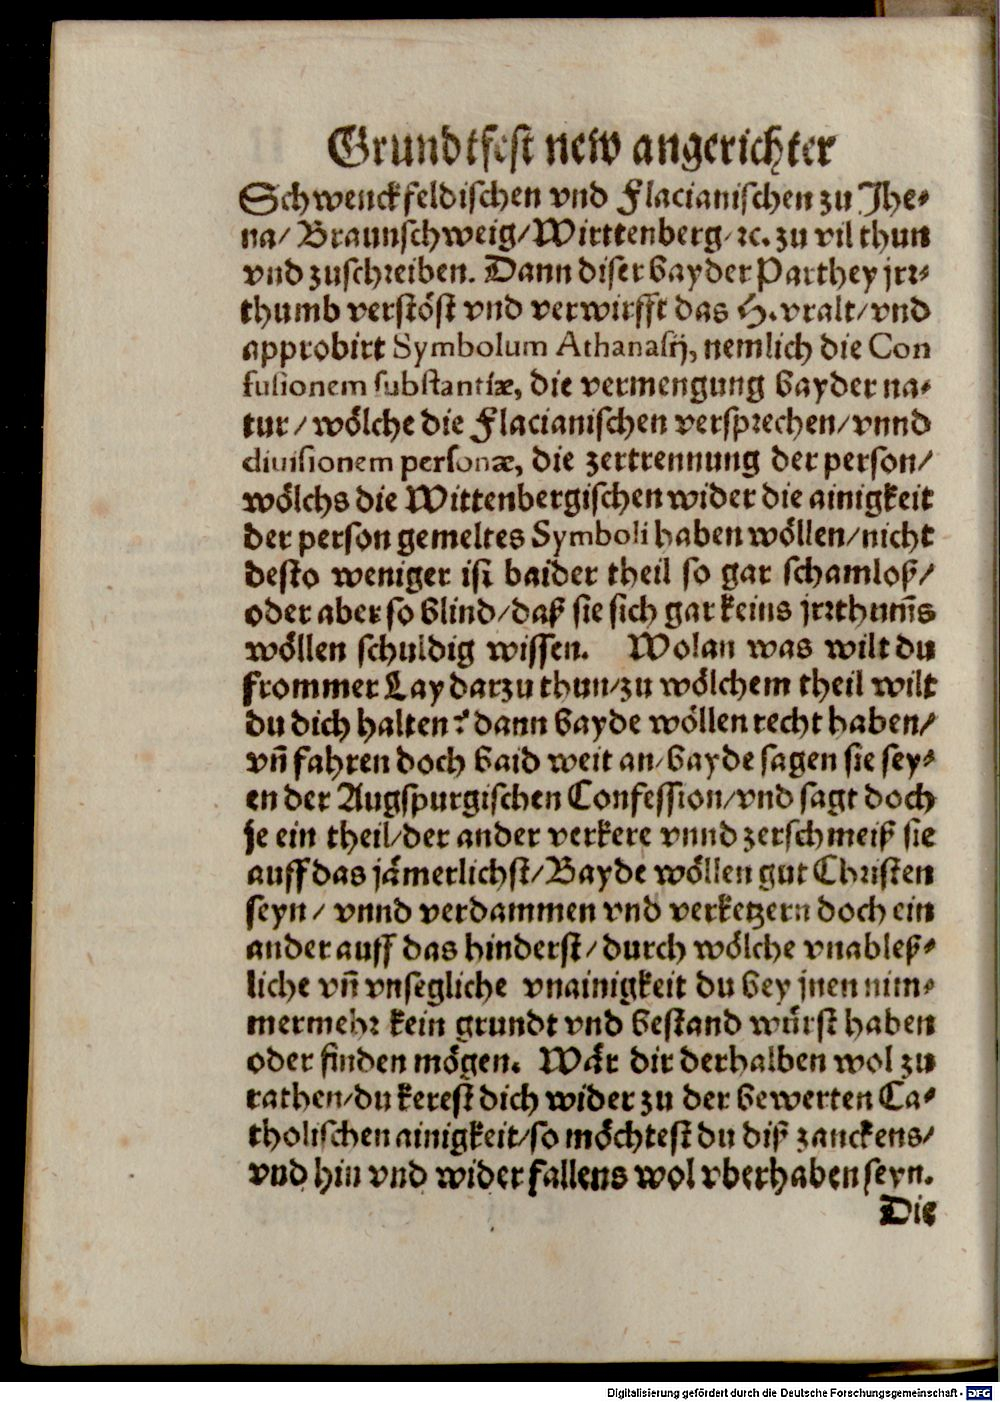 Grundtfest new angerichter
Schwenckfeldischen vnd Flacianischen zu Jhe-
na/ Braunschweig/ Wirttenberg/ ꝛc. zu vil thun
vnd zuschreiben. Dann diser bayder Parthey jrr-
thumb verstöst vnd verwirfft das H. vralt/ vnd
approbirt Symbolum Athanasij, nemlich die Con
fusionem substantiæ, die vermengung bayder na-
tur/ wölche die Flacianischen versprechen/ vnnd
diuisionem personæ, die zertrennung der person/
wölchs die Wittenbergischen wider die ainigkeit
der person gemeltes Symboli haben wöllen/ nicht
desto weniger ist baider theil so gar schamloß/
oder aber so blind/ daß sie sich gar keins jrrthum̄s
wöllen schuldig wissen. Wolan was wilt du
frommer Lay darzu thun/ zu wölchem theil wilt
du dich halten? dann bayde wöllen recht haben/
vn̄ fahren doch baid weit an/ bayde sagen sie sey-
en der Augspurgischen Confession/ vnd sagt doch
je ein theil/ der ander verkere vnnd zerschmeiß sie
auff das jämerlichst/ Bayde wöllen gut Christen
seyn/ vnnd verdammen vnd verketzern doch ein
ander auff das hinderst/ durch wölche vnableß-
liche vn̄ vnsegliche vnainigkeit du bey jnen nim-
mermehr kein grundt vnd bestand würst haben
oder finden mögen. Wär dir derhalben wol zu
rathen/ du kerest dich wider zu der bewerten Ca-
tholischen ainigkeit/ so möchtest du diß zanckens/
vnd hin vnd wider fallens wol vberhaben seyn.
Die
Digitalisierung gefördert durch die Deutsche Forschungsgemeinschaft - DFG